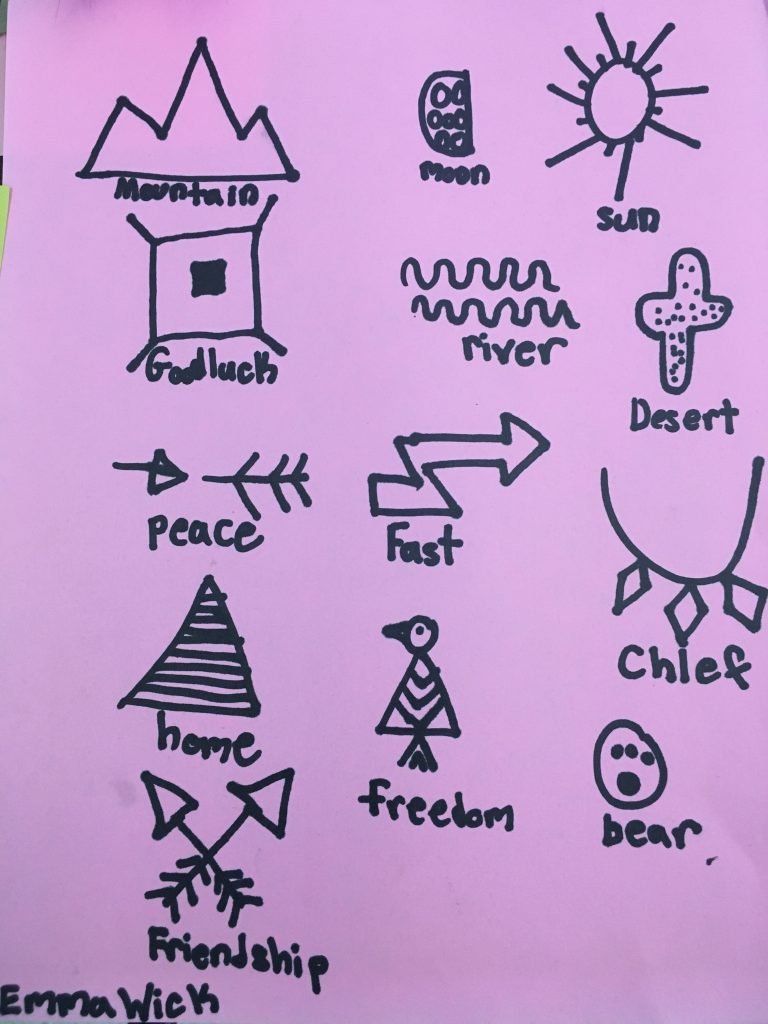 Mountain
moon
sun
Goodluck
river
Desert
peace
Fast
Chief
home
freedom
bear
Friendship
Emma Wick